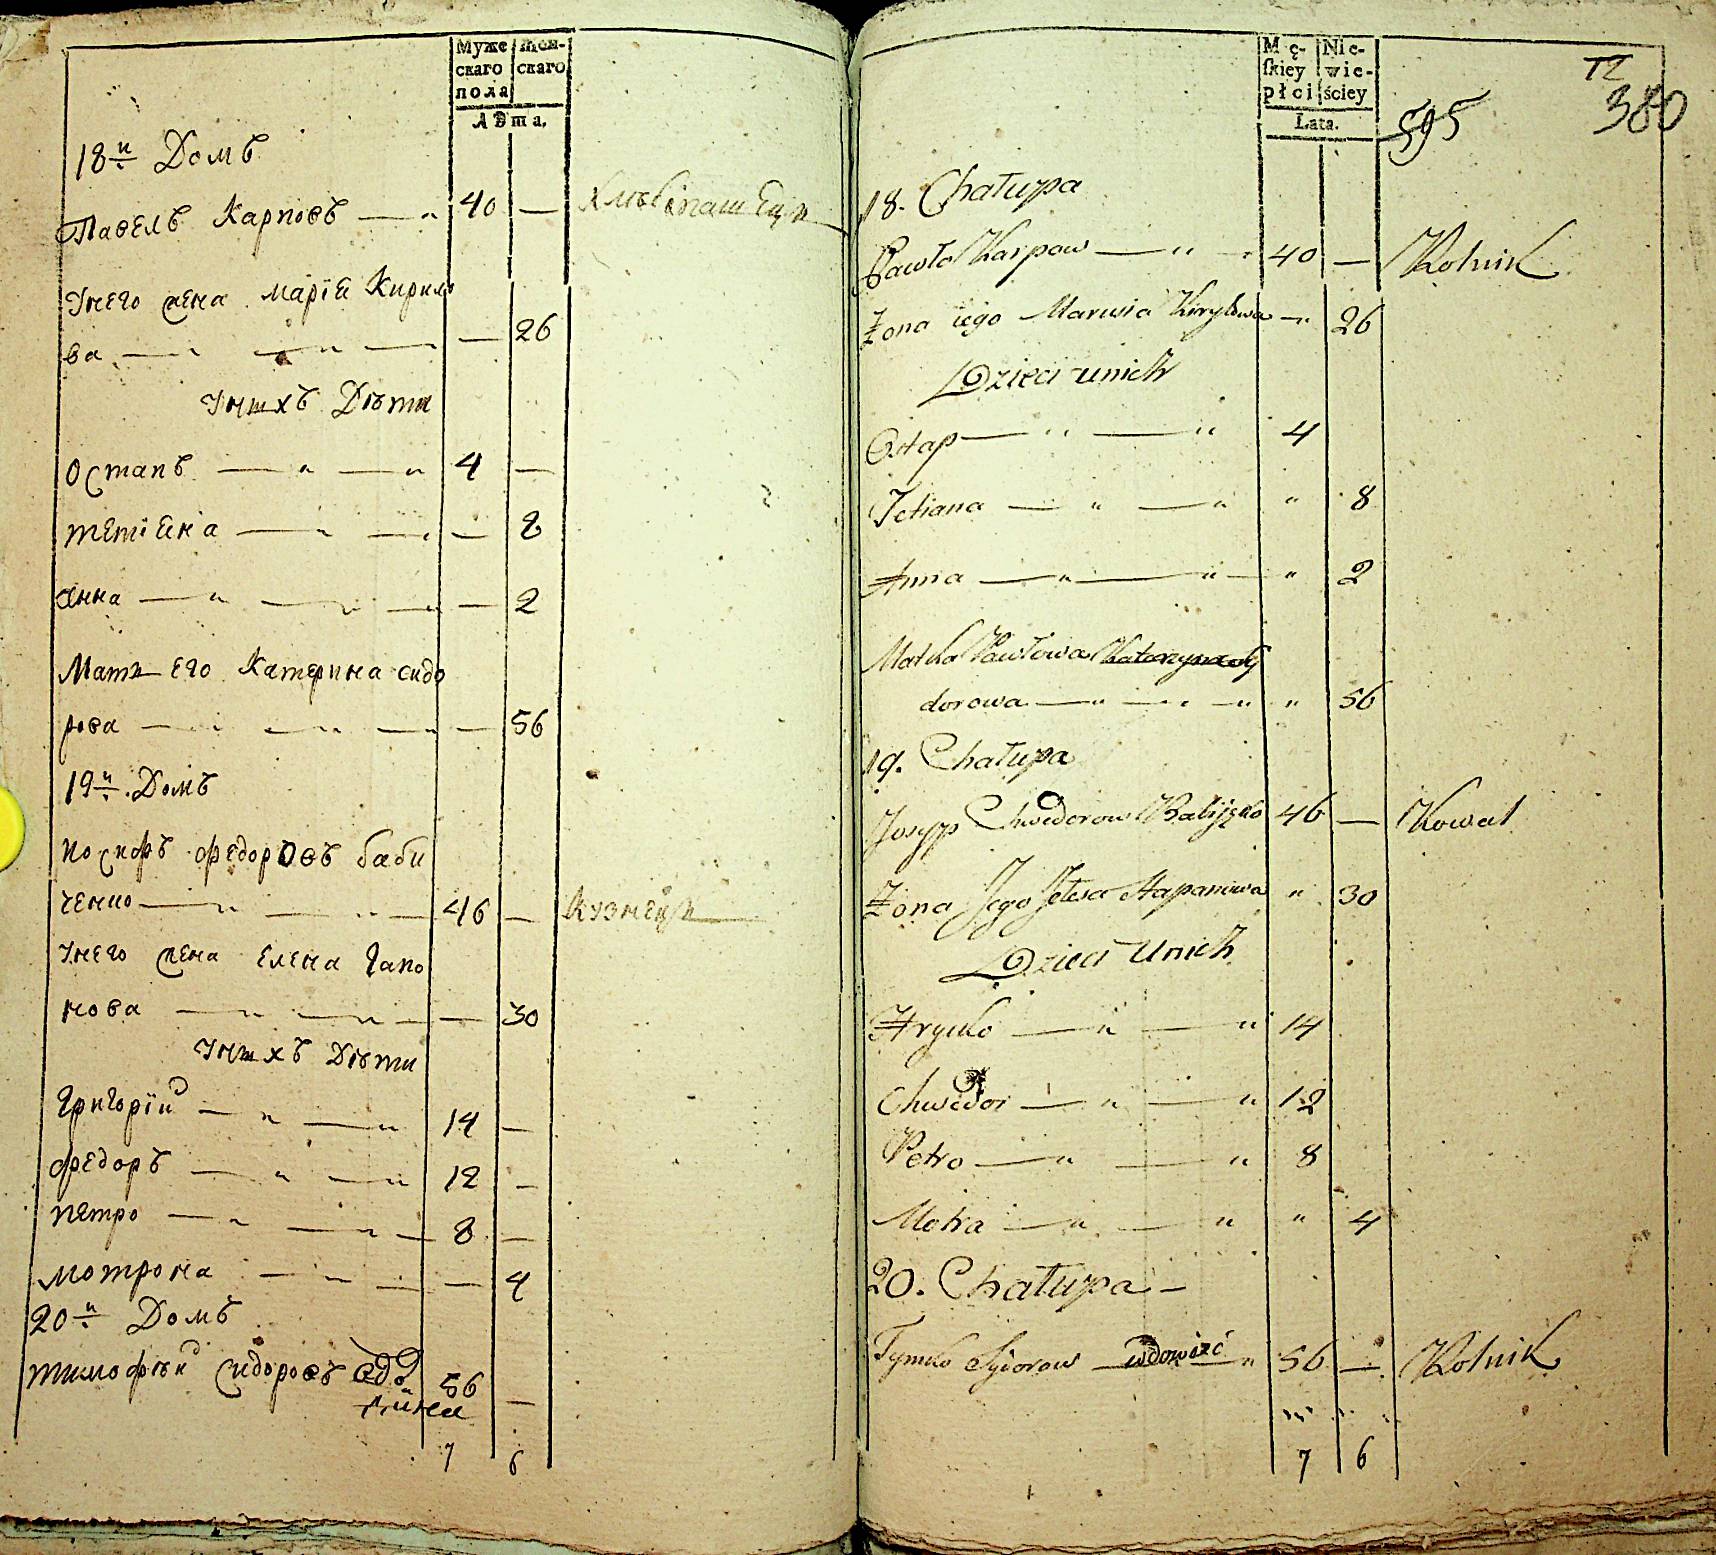 Муже Жен-
скаго скаго
пола
Лѣта.
18й Домъ
Павелъ Карповъ — " 40 — Хлѣбопашецъ
Унего жена Марія Кирило
ва — " — " — — 26
Унихъ Дѣти
Остапъ — " — " 4 —
Тетіана — " — " — 8
Анна — " — " — " — 2
Мати его Катерина Сидо
рова — " — " — " — 56
19й Домъ
Иосифъ Федоровъ Баби
ченко — " — " — 46 — Кузнецъ
Унего жена Елена Гапо
нова — " — " — — 30
Унихъ Дѣти
Григорій — " — " 14 —
Федоръ — " — " 12 —
Петро — " — " — 8 —
Мотрона — " — — 4
20й Домъ
Тимофѣй Сидоровъ вдо 56 —
7 6
Mę- Nie-
ſkiey wie-
płci ściey
Lata.
595
380
18. Chałupa
Pawło Karpow — " - 40 — Rolnik
Żona iego Marusia Kiryłowa — " 26
Dzieci unich
Ostap — " — " 4
Tetiana — " — " " 8
Anna — " — " — " 2
Matka Pawłowa Katarzyna Sy
dorowa — " — " — " " 56
19. Chałupa
Josyp Chwedorow Babiczko 46 — Kowal
Żona Jego Hapanowa " 30
Dzieci Unich
Hryćko — " — " 14
Chwedor — " — " 12
Petro — " — " 8
Motra — " — " " 4
20. Chałupa —
Tymko Sydorow — wdowieć " 56 — Rolnik
7 6